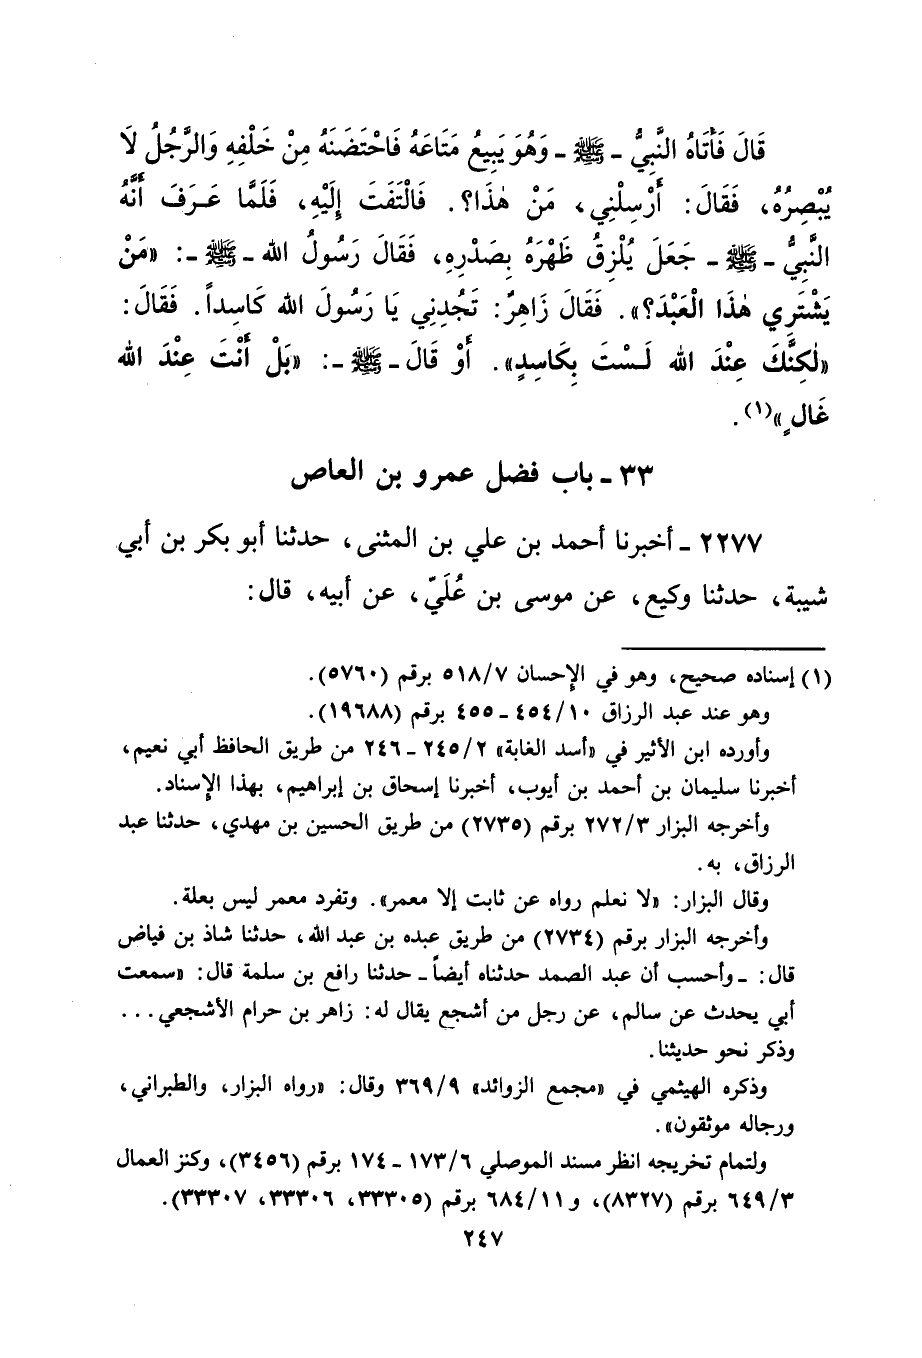 قَالَ فَأَتَاهُ النَّبِيُّ ـ ﷺ ـ وَهُوَ يَبِيعُ مَتَاعَهُ فَاحْتَضَنَهُ مِنْ خَلْفِهِ وَالرَّجُلُ لَا
يُبْصِرُهُ، فَقَالَ: أَرْسِلْنِي، مَنْ هٰذَا؟. فَالْتَفَتَ إِلَيْهِ، فَلَمَّا عَرَفَ أَنَّهُ
النَّبِيُّ ـ ﷺ ـ جَعَلَ يُلْزِقُ ظَهْرَهُ بِصَدْرِهِ، فَقَالَ رَسُولُ الله ـ ﷺ ـ: «مَنْ
يَشْتَرِي هٰذَا الْعَبْدَ؟». فَقَالَ زَاهِرٌ: تَجُدِنِي يَا رَسُولَ الله كَاسِداً. فَقَالَ:
«لٰكِنَّكَ عِنْدَ الله لَسْتَ بِكَاسِدٍ». أَوْ قَالَ ـ ﷺ ـ: «بَلْ أَنْتَ عِنْدَ الله
غَالٍ»(١).
٣٣ ـ باب فضل عمرو بن العاص
٢٢٧٧ ـ أخبرنا أحمد بن علي بن المثنى، حدثنا أبو بكر بن أبي
شيبة، حدثنا وكيع، عن موسى بن عُلَيّ، عن أبيه، قال:
(١) إسناده صحيح، وهو في الإحسان ٥١٨/٧ برقم (٥٧٦٠).
وهو عند عبد الرزاق ٤٥٤/١٠ ـ ٤٥٥ برقم (١٩٦٨٨).
وأورده ابن الأثير في «أسد الغابة» ٢٤٥/٢ ـ ٢٤٦ من طريق الحافظ أبي نعيم،
أخبرنا سليمان بن أحمد بن أيوب، أخبرنا إسحاق بن إبراهيم، بهذا الإسناد.
وأخرجه البزار ٢٧٢/٣ برقم (٢٧٣٥) من طريق الحسين بن مهدي، حدثنا عبد
الرزاق، به.
وقال البزار: «لا نعلم رواه عن ثابت إلا معمر». وتفرد معمر ليس بعلة.
وأخرجه البزار برقم (٢٧٣٤) من طريق عبده بن عبد الله، حدثنا شاذ بن فياض
قال: ـ وأحسب أن عبد الصمد حدثناه أيضاً ـ حدثنا رافع بن سلمة قال: «سمعت
أبي يحدث عن سالم، عن رجل من أشجع يقال له: زاهر بن حرام الأشجعي...
وذكر نحو حديثنا.
وذكره الهيثمي في «مجمع الزوائد» ٣٦٩/٩ وقال: «رواه البزار، والطبراني،
ورجاله موثقون».
ولتمام تخريجه انظر مسند الموصلي ١٧٣/٦ ـ ١٧٤ برقم (٣٤٥٦)، وكنز العمال
٦٤٩/٣ برقم (٨٣٢٧)، و ٦٨٤/١١ برقم (٣٣٣٠٥، ٣٣٣٠٦، ٣٣٣٠٧).
٢٤٧